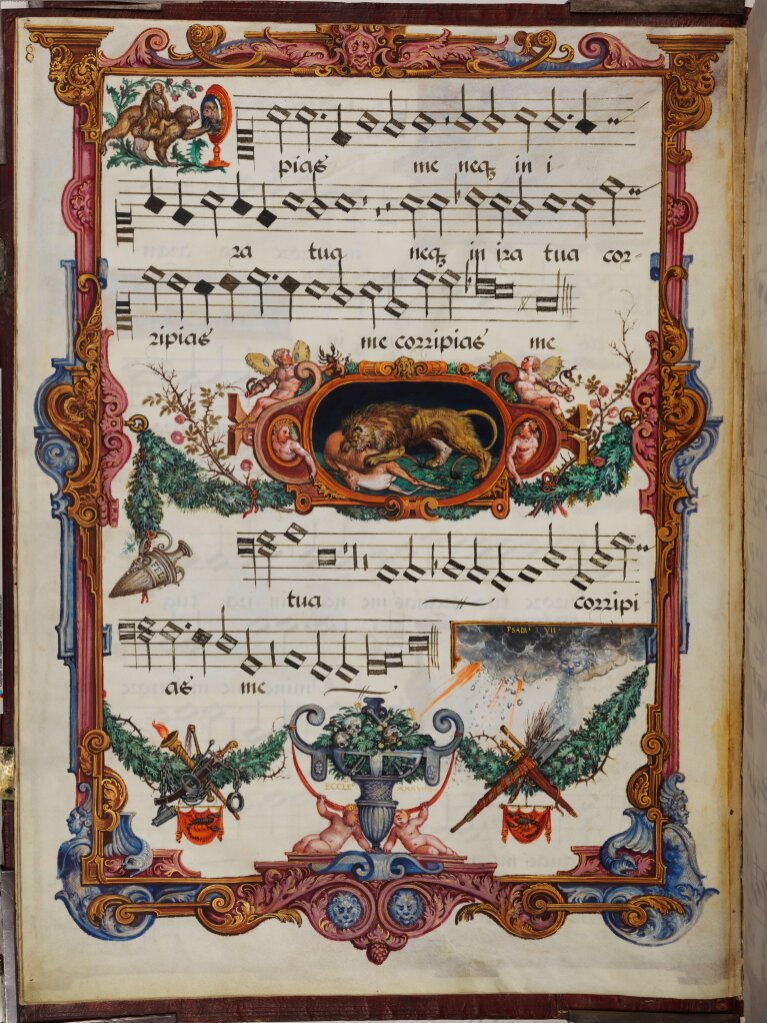 pias me neqꝫ in i
ra tua neqꝫ in ira tua cor-
ripias me corripias me
tua corripi
as me
PSAL: VII
ECCLE: